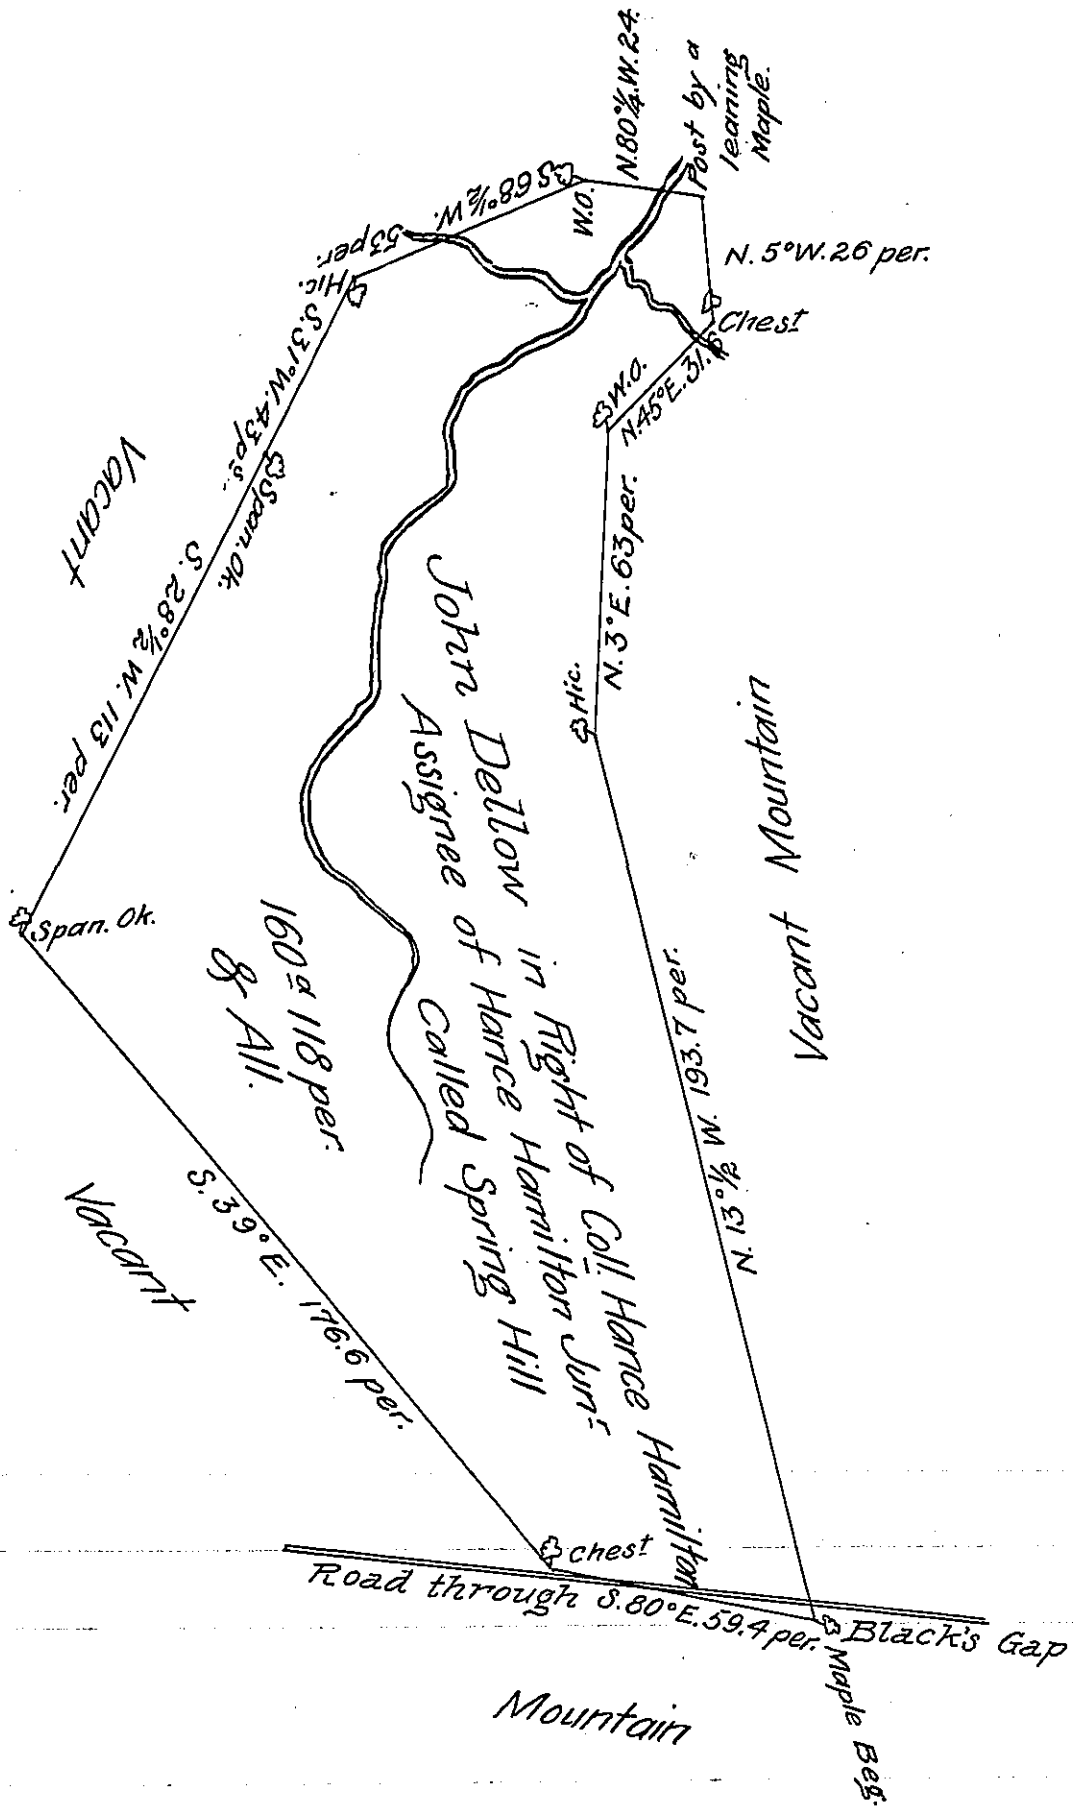 N.80°¼.W.24.
Post by a
leaning
Maple.
S 68°½ W.
53 per.
W.O.
N. 5°W. 26 per.
Chest
Hic.
S. 31°W. 43 ps.
W.O.
N.45°E. 31.6
Span. Ok.
Vacant
S. 28°½ W. 113 per.
N. 3°E. 63 per.
Hic.
Vacant Mountain
John Dellow in Right of Coll. Hance Hamilton
Assignee of Hance Hamilton Junr
Called Spring Hill
160 a 118 per.
& All.
Span. Ok.
N. 13°½ W. 193.7 per.
S. 39°E. 176.6 per.
Vacant
chest
Road through
S. 80°E. 59.4 per.
Black's Gap
Maple Beg.
Mountain